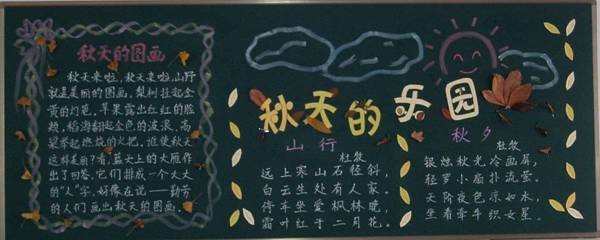 秋天的图画
秋天来啦，秋天来啦，山野
就是美丽的图画。梨树挂起金
黄的灯笼，苹果露出红红的脸
颊，稻海翻起金色的波浪，高
粱举起燃烧的火把。谁使秋天
这样美丽？看，蓝天上的大雁作
出了回答，它们排成一个大大
的“人”字，好像在说——勤劳
的人们画出秋天的图画。
秋天的乐园
山行
杜牧
远上寒山石径斜，
白云生处有人家。
停车坐爱枫林晚，
霜叶红于二月花。
秋夕
杜牧
银烛秋光冷画屏，
轻罗小扇扑流萤。
天阶夜色凉如水，
坐看牵牛织女星。